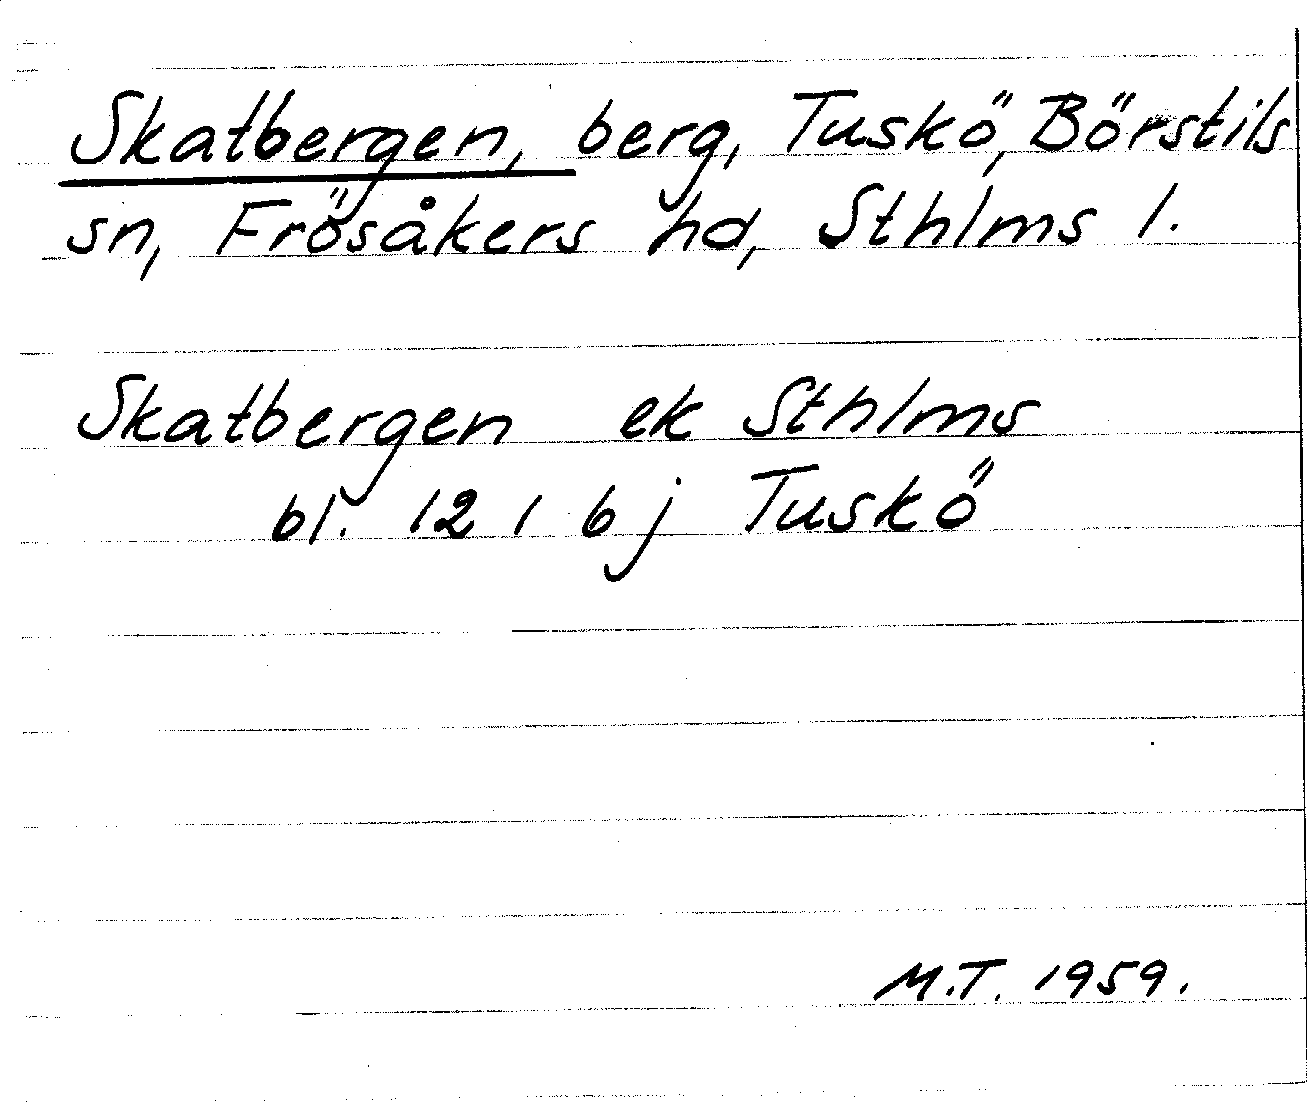 Skatbergen, berg, Tuskö, Börstils
sn, Frösåkers hd, Sthlms l.
Skatbergen ek Sthlms
bl. 12 1 6 j Tuskö
M.T. 1959.